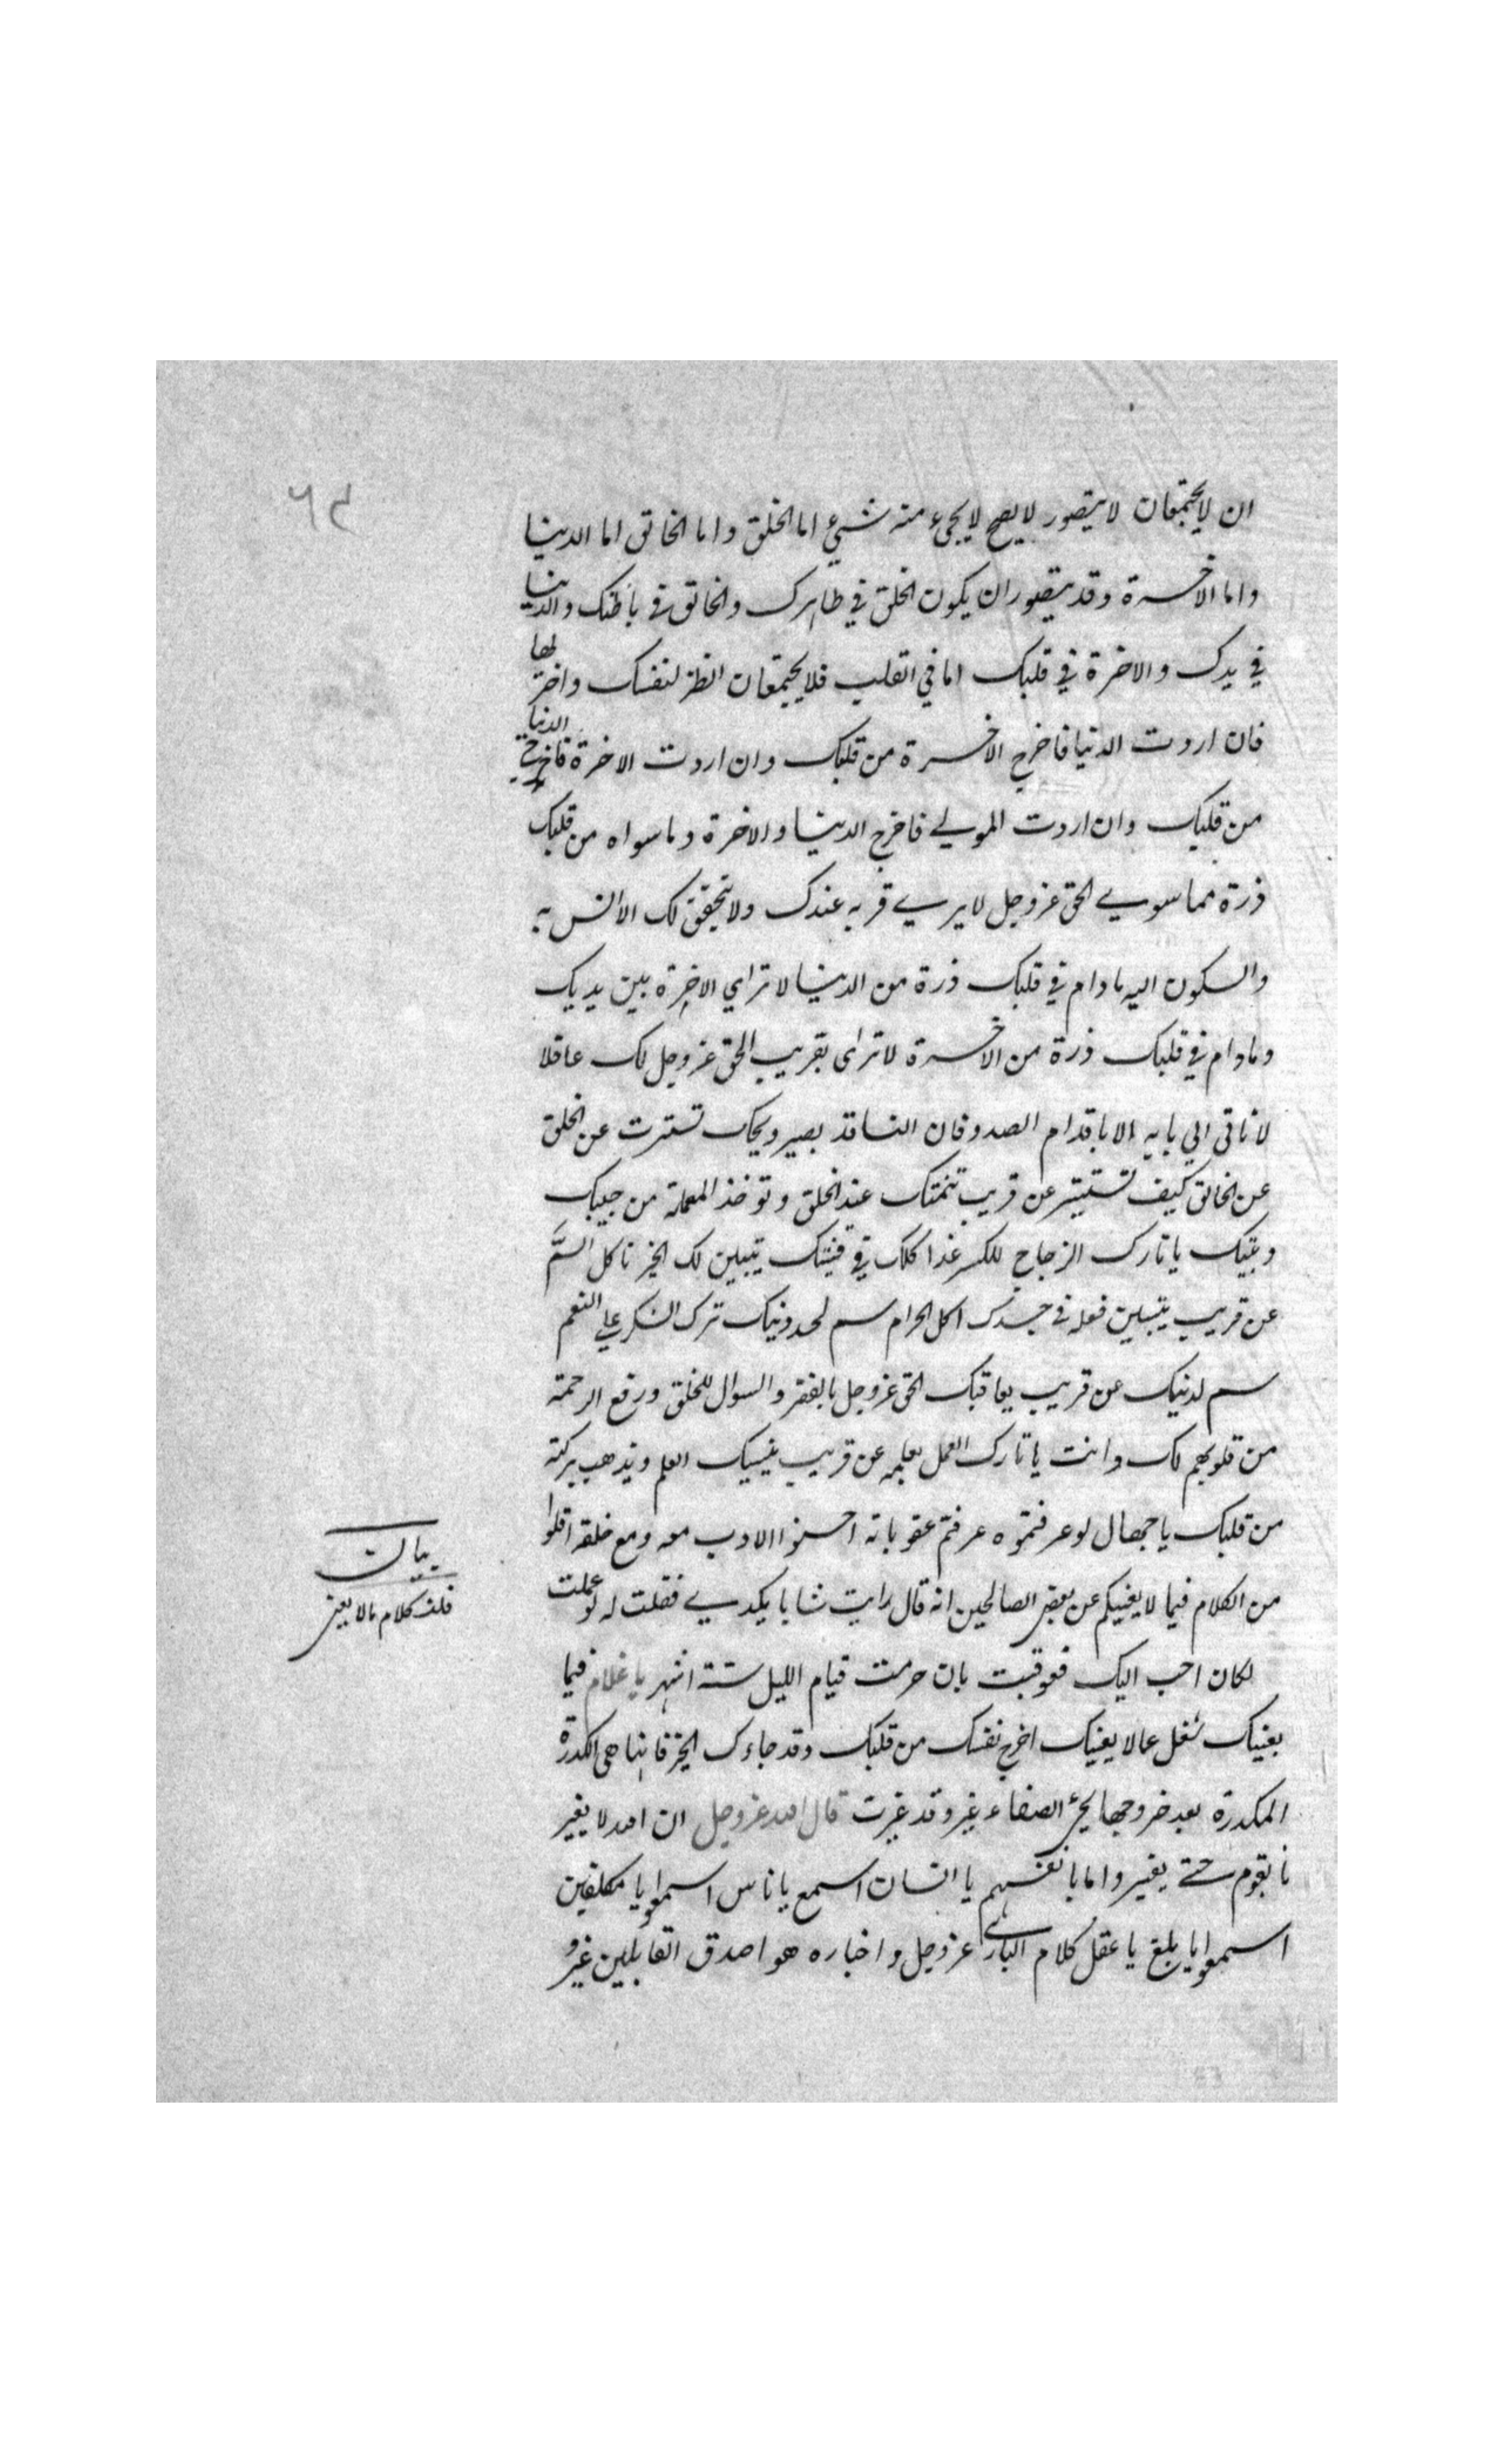 ٦٢
ان لا يجتمعان لا يتصور لا يصح لا يجيء منه شيء اما الخلق واما الخالق اما الدنيا
واما الاخرة وقد يتصور ان يكون الخلق في ظاهرك والخالق في باطنك والدنيا
في يدك والاخرة في قلبك اما في القلب فلا يجتمعان انظر لنفسك واختر لها
فان اردت الدنيا فاخرج الاخرة من قلبك وان اردت الاخرة فاخرج الدنيا
من قلبك وان اردت المولي فاخرج الدنيا والاخرة وما سواه من قلبك
ذرة مما سوي الحق عزوجل لا يري قربه عندك ولا يتحقق لك الانس به
والسكون اليه مادام في قلبك ذرة من الدنيا لا تراي الاخرة بين يديك
ومادام في قلبك ذرة من الاخرة لا تراى بقريب الحق عزوجل لك عاقلا
لا تاتي الي بابه الا باقدام الصدق فان الناقد بصير ويحك تستترت عن الخلق
عن الخالق كيف تستتر عن قريب تنمتك عند الخلق وتوخذ المعملة من جيبك
وبيتك يا تارك الزجاج للكسر غدا كلاك في قنيتك يتبين لك الخبز تاكل السم
عن قريب يتبين فعله في جسدك اكل الحرام سم لجد دينك ترك الشكر علي النعم
سم لدينك عن قريب يعاقبك الحق عزوجل بالفقر والسوال للخلق ورفع الرحمة
من قلوبهم لك وانت يا تارك العمل بعلمه عن قريب ينسيك العلم ويذهب بركته
من قلبك يا جهال لو عرفتموه عرفتم عقوباته احسنوا الادب معه ومع خلقه اقلوا
من الكلام فيما لا يعنيكم عن بعض الصالحين انه قال رايت شابا يكدي فقلت له لو عملت
لكان احب اليك فعوقبت بان حرمت قيام الليل ستة اشهر يا غلام فيما
يعنيك شغل عما لا يعنيك اخرج نفسك من قلبك وقد جاءك الخير فانها هي الكدرة
المكدرة بعد خروجها يجيء الصفاء غير وقد غيرت قال الله عزوجل ان الله لا يغير
ما بقوم حتي يغيروا ما بانفسهم يا انسان اسمع يا ناس اسمعوا يا مكلفين
اسمعوا يا بلغ يا عقل كلام الباري عزوجل واخباره هو اصدق القايلين غيروا
بيان
قلت كلام ما لا يعنى